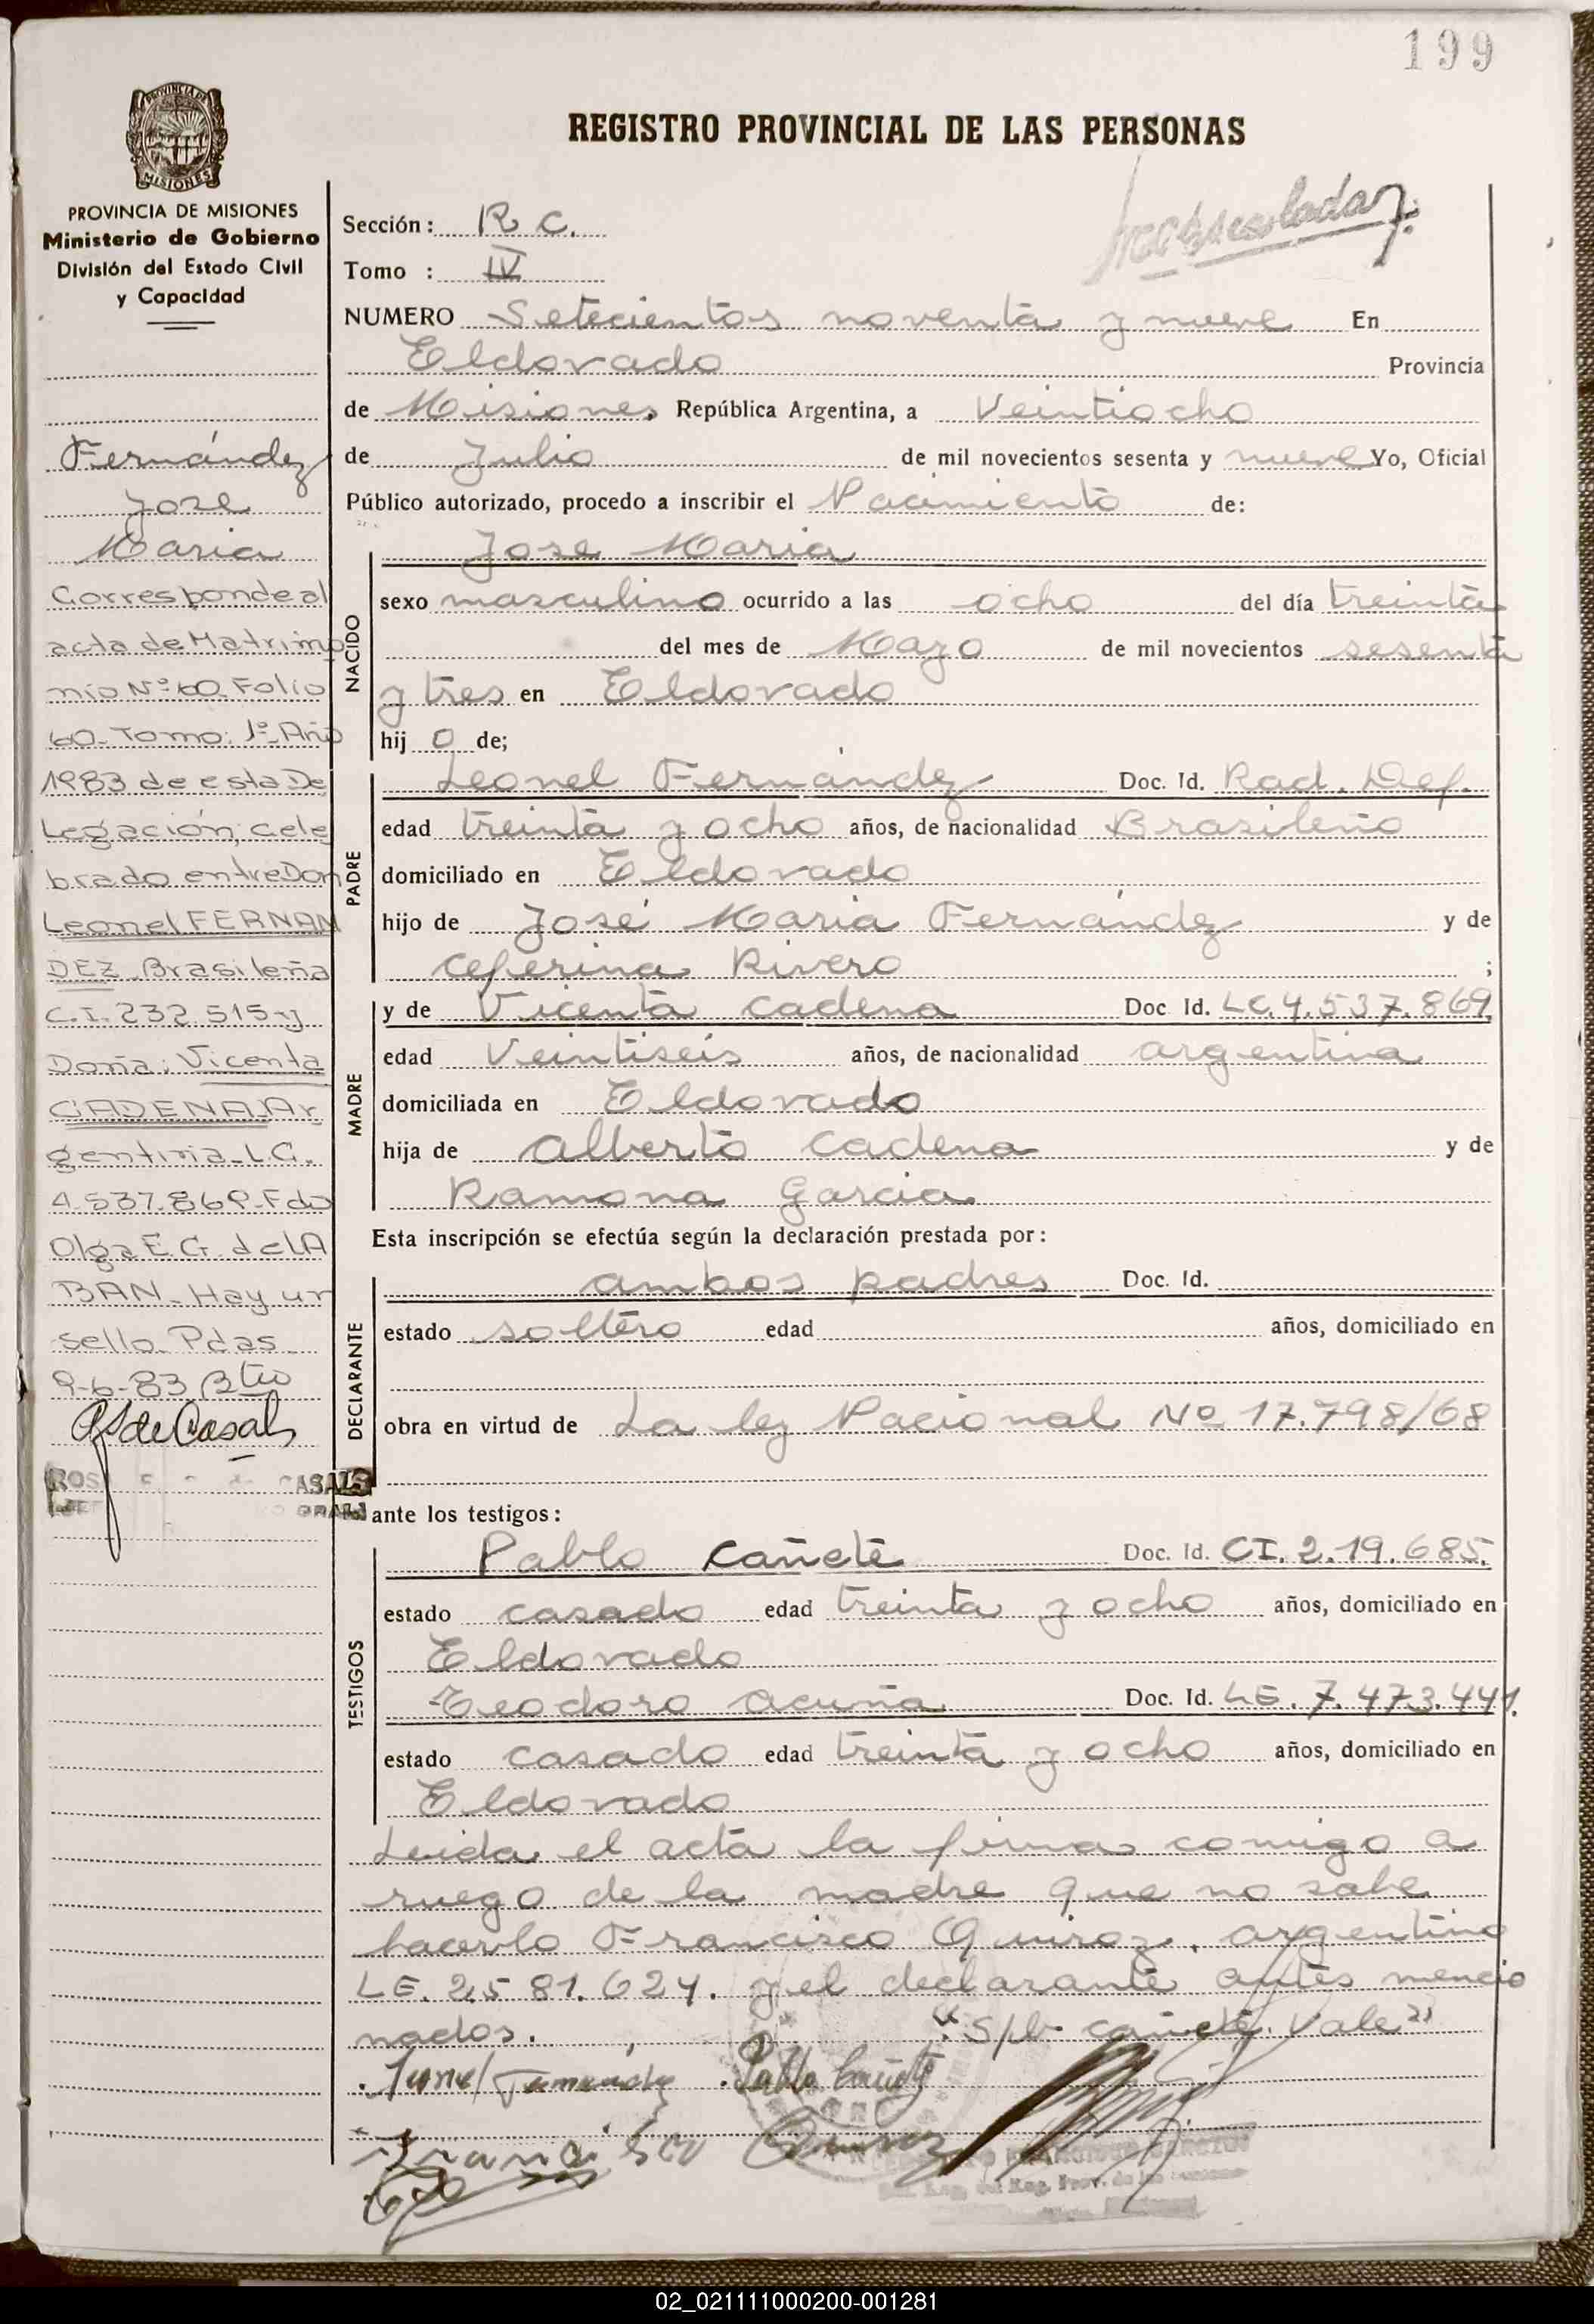 199
REGISTRO PROVINCIAL DE LAS PERSONAS
PROVINCIA DE MISIONES
PROVINCIA DE MISIONES
Ministerio de Gobierno
División del Estado Civil
y Capacidad
Fernández
Jose
Maria
Corresponde al
acta de Matrimo
nio Nº 60 Folio
60-Tomo: 1º-Año
1983 de esta De
Legación, cele
brado entre Don
Leonel FERNAN
DEZ Brasileña
C.I. 232.515-y
Doña: Vicenta
CADENA, Ar
gentina-L.C.
4.537.869-Fdo
Olga E.G. de LA
BAN-Hay un
sello-Pdas
9-6-83
de Casals
CASALS
Sección: R C.
Tomo : IV
NUMERO Setecientos noventa y nueve En
Eldorado Provincia
de Misiones República Argentina, a Veintiocho
de Julio de mil novecientos sesenta y nueve Yo, Oficial
Público autorizado, procedo a inscribir el Nacimiento de:
NACIDO
Jose Maria
sexo masculino ocurrido a las ocho del día treinta
del mes de Mayo de mil novecientos sesenta
y tres en Eldorado
hij o de;
PADRE
Leonel Fernández Doc. Id. Rad. Def.
edad treinta y ocho años, de nacionalidad Brasileño
domiciliado en Eldorado
hijo de José Maria Fernández y de
Ceferina Rivero ;
MADRE
y de Vicenta Cadena Doc Id. LC. 4.537.869
edad Veintiseis años, de nacionalidad argentina
domiciliada en Eldorado
hija de Alberto Cadena y de
Ramona Garcia
Esta inscripción se efectúa según la declaración prestada por:
DECLARANTE
ambos padres Doc. Id.
estado soltero edad años, domiciliado en
obra en virtud de La ley Nacional Nº 17.798/68
ante los testigos:
TESTIGOS
Pablo Cañete Doc. Id. CI. 2.19.685.
estado casado edad treinta y ocho años, domiciliado en
Eldorado
Teodoro Acuña Doc. Id. LE. 7.473.441.
estado casado edad treinta y ocho años, domiciliado en
Eldorado
Leida el acta la firma comigo a
ruego de la madre que no sabe
hacerlo Francisco Quiroz, argentino
LE. 2.581.624. y el declarante antes mencio
nados. "S/b cañete. Vale"
Pablo Cañete
Francisco Quiroz
02_021111000200-001281